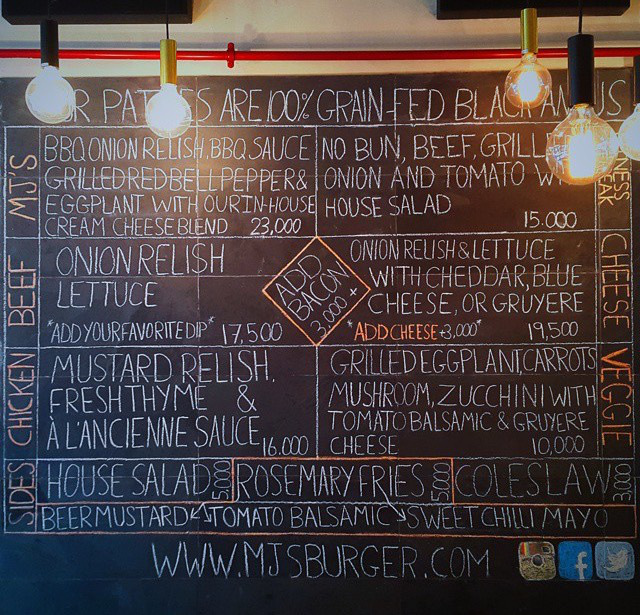 OUR PATTIES ARE 100% GRAIN-FED BLACK ANGUS
MJ'S
BBQ ONION RELISH, BBQ SAUCE
GRILLED RED BELL PEPPER &
EGGPLANT WITH OUR IN-HOUSE
CREAM CHEESE BLEND 23,000
NO BUN, BEEF, GRILLED
ONION AND TOMATO WITH
HOUSE SALAD
15.000
BEEF
ONION RELISH
LETTUCE
*ADD YOUR FAVORITE DIP* 17,500
ADD
BACON
3,000 +
ONION RELISH & LETTUCE
WITH CHEDDAR, BLUE
CHEESE, OR GRUYERE
*ADD CHEESE +3,000* 19,500
CHEESE
CHICKEN
MUSTARD RELISH,
FRESH THYME &
À L'ANCIENNE SAUCE 16.000
GRILLED EGGPLANT, CARROTS
MUSHROOM, ZUCCHINI WITH
TOMATO BALSAMIC & GRUYERE
CHEESE 10,000
VEGGIE
SIDES
HOUSE SALAD 5,000 ROSEMARY FRIES 5,000 COLESLAW 3000
BEER MUSTARD TOMATO BALSAMIC SWEET CHILLI MAYO
WWW.MJSBURGER.COM